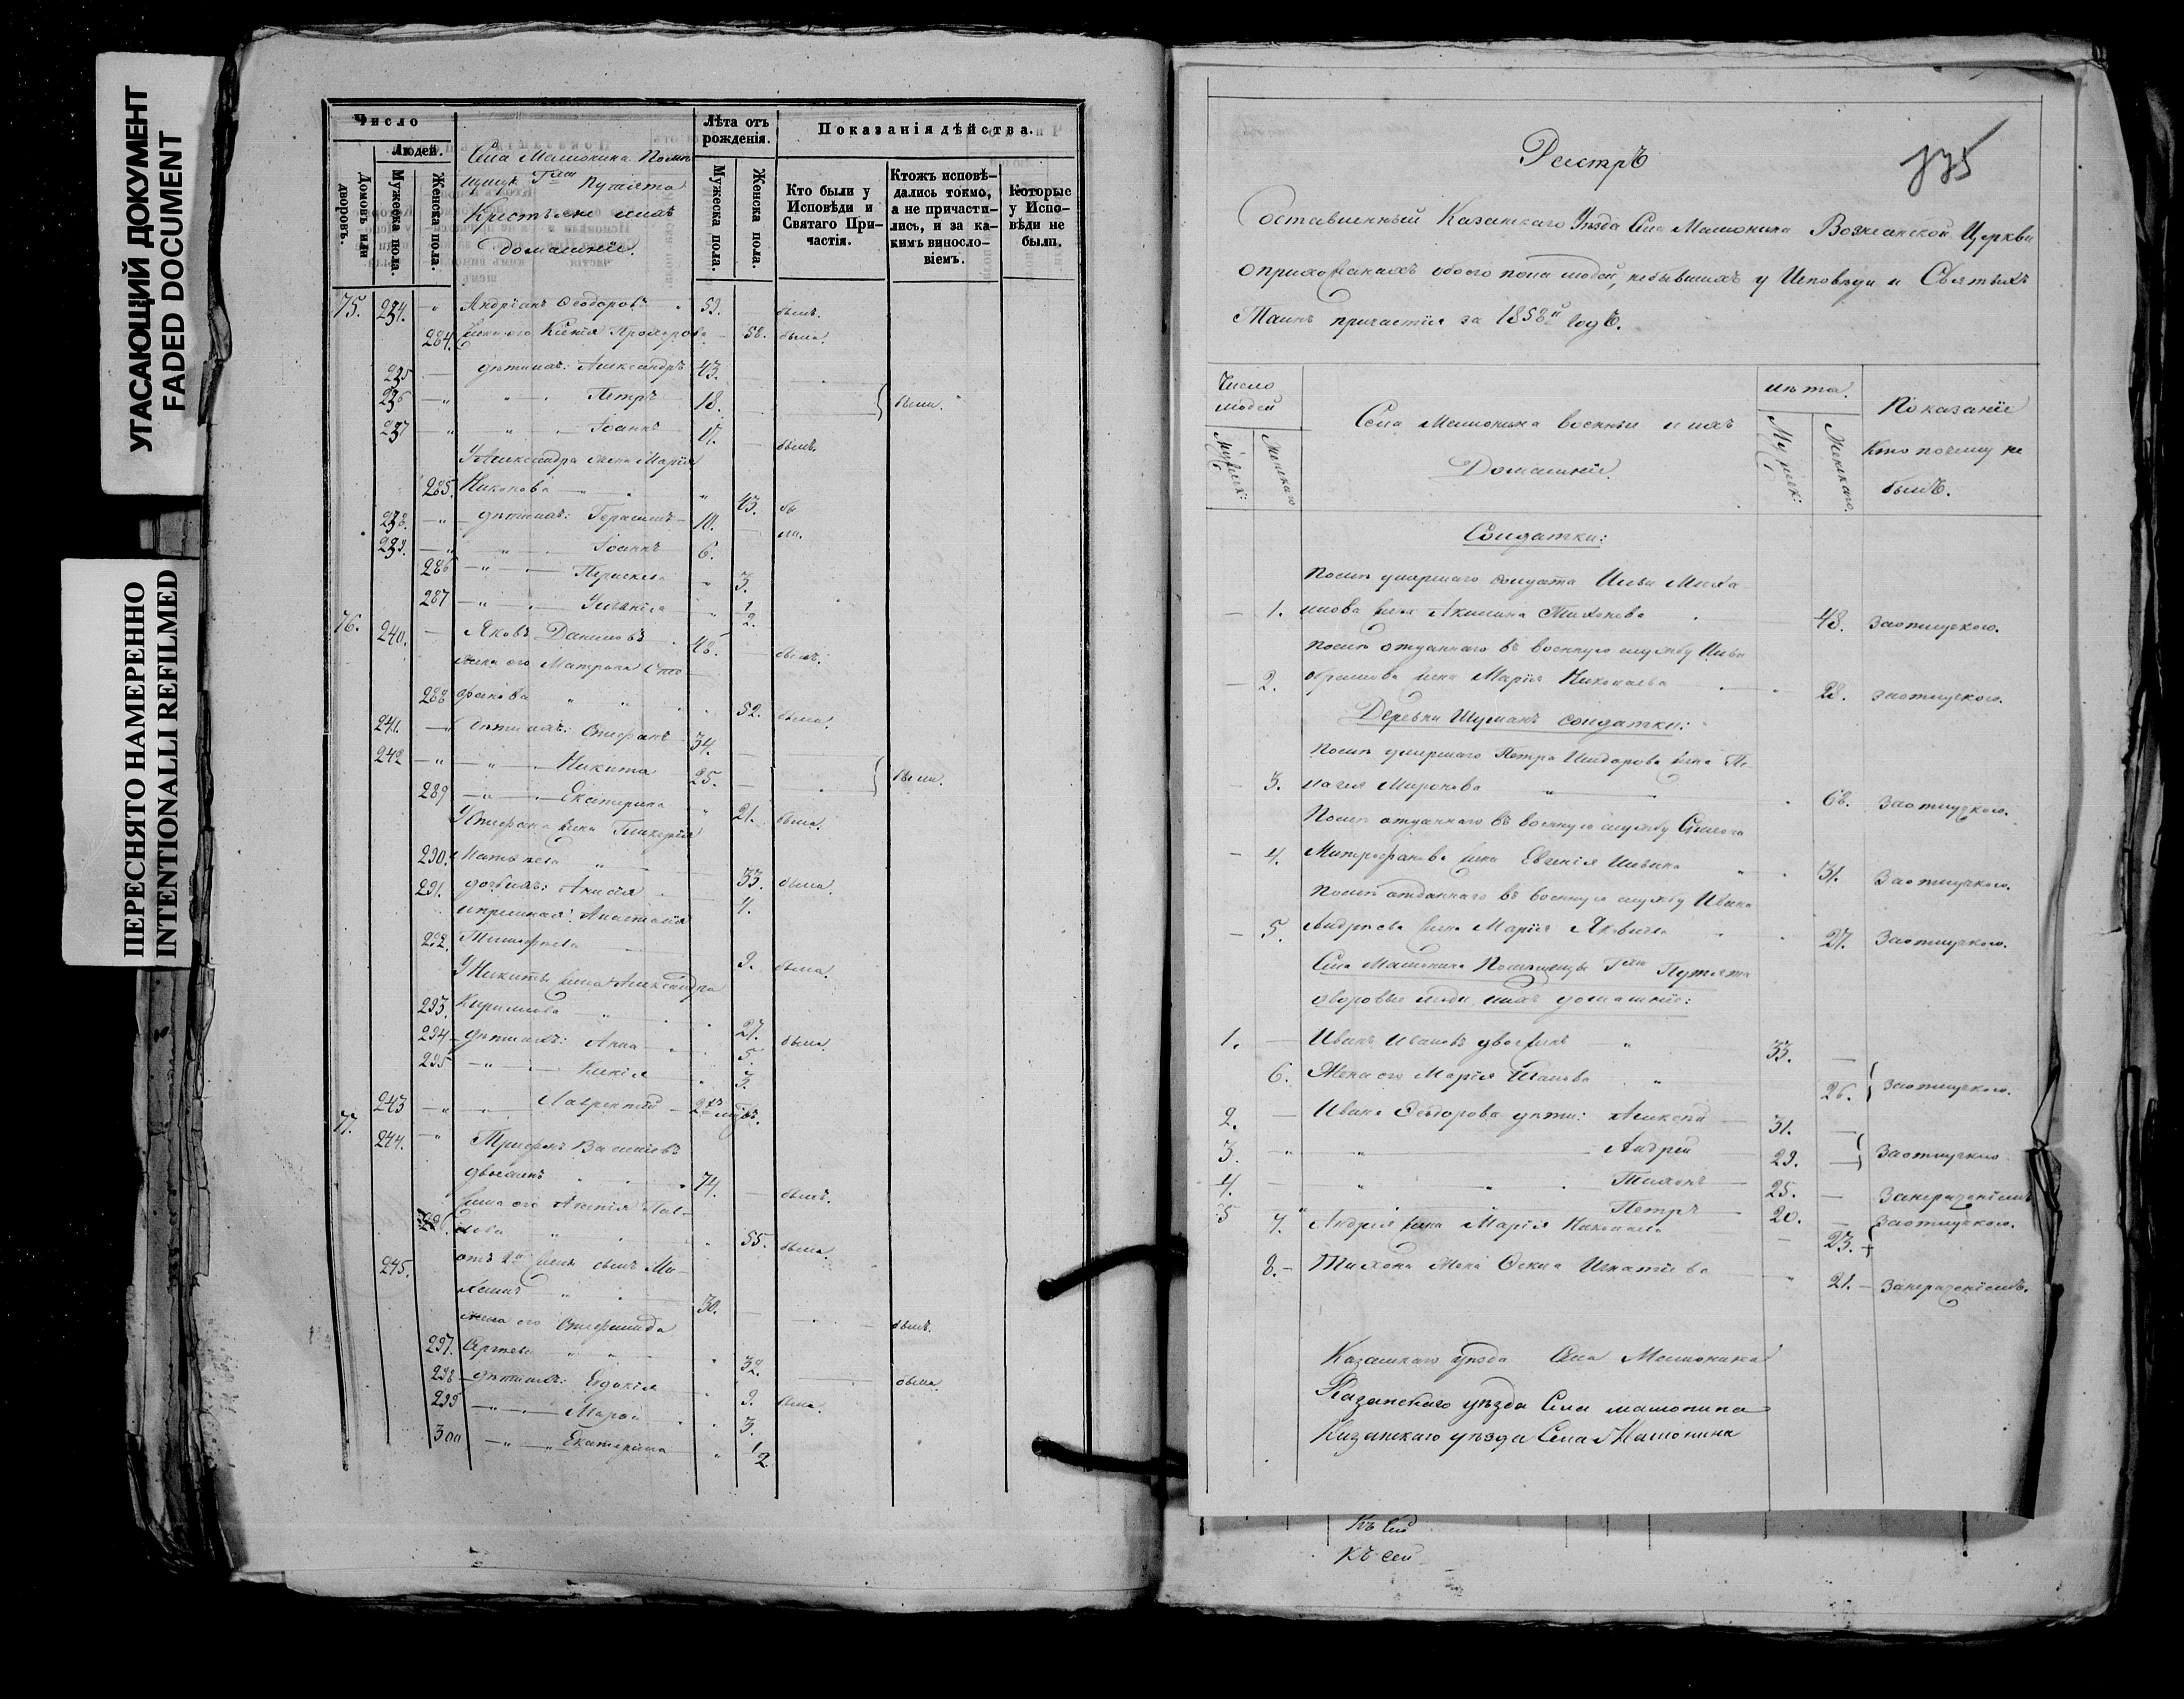 УГАСАЮЩИЙ ДОКУМЕНТ
FADED DOCUMENT
ПЕРЕСНЯТО НАМЕРЕННО
INTENTIONALLI REFILMED
Число
Людей.
Домовъ или дворовъ.
Мужеска пола.
Женска пола.
Села Машонина Помѣ
щицы Г-жи Путята
Крестьяне и ихъ
домашніе.
Лѣта отъ рожденія.
Мужеска пола.
Женска пола.
Показанія дѣйства.
Кто были у Исповѣди и Святаго При-
частія.
Ктожъ исповѣ-
дались токмо,
а не причасти-
лись, и за ка-
кимъ винословіемъ.
Которые
у Испо-
вѣди не
были.
75. 234. Андріанъ Ѳеодоровъ 59. былъ.
284. Жена его Ксенія Прохорова 58. была.
235 дѣти ихъ: Александръ 43.
236 Петръ 18. были.
237 Іоаннъ 17. былъ.
У Александра жена Марія
285. Никонова 43. бы
238. дѣти ихъ: Герасимъ 10. ли.
239. Іоаннъ 6.
286 3.
287 1/2.
76. 240. Яковъ Даниловъ 48. былъ.
жена его Матрона Сте
288 фанова 52. была.
241. дѣти ихъ: Стефанъ 34.
242 Никита 25. были.
289 Екатерина 21. была.
У Стефана жена Гликерія
290. Игнатьева 33. была.
291. дочь ихъ: Анисія 4.
Анастасія
292. Тимофеева 9. была.
У Никиты жена Александра
293. Кирилова 27. была.
294 дѣти ихъ: Анна 5.
295 Ксенія 3.
243 Лаврентій 2
77. 244. Трифонъ Васильевъ
74. былъ.
жена его Аксинія Пав-
296. лова 55. была.
245. отъ 1й жены сынъ Ми-
хаилъ 30. былъ.
жена его Степанида
297. Сергеева 32. была
298 дѣти ихъ: Евдокія 9. была.
299 3.
300 Екатерина 1/2
Реестръ
335
Составленный Казанскаго Уѣзда Села Машонина Вознесенской Церкви
о прихожанахъ обоего пола людей, небывшихъ у Исповѣди и Святыхъ
Таинъ причастія за 1858й годъ.
Число
людей
Мужеск:
Женскаго
Села Машонина военные и ихъ
Домашніе.
лѣта.
Мужеск:
Женскаго.
Показаніе
Кто почему не
былъ.
Солдатки:
Послѣ умершаго солдата Ильи Миха
1. илова жена Акилина Тихонова 48. За отлучкою.
Послѣ отданнаго въ военную службу
2. жена Марія Николаева 28. За отлучкою.
Деревни Шуманъ солдатки:
Послѣ умершаго Петра Исидорова жена Пе
3. лагея Миронова 68. За отлучкою.
Послѣ отданнаго въ военную службу Симона
4. Митрофанова жена Евгенія Ильина 31. За отлучкою.
Послѣ отданнаго въ военную службу Ивана
5. Андреева жена Марія Яковлева 27. За отлучкою.
Села Машонина Помѣщицы Г-жи Путята
дворовые люди и ихъ домашніе:
1. Иванъ Ивановъ 33.
6. Жена его Марія Иванова 26. За отлучкою.
2. Ивана Ѳедорова дѣти: Алексѣй 31.
3. Андрей 29. За отлучкою
4. Тихонъ 25. За нераденіемъ
5 Петръ 20. За отлучкою.
7. Андрея жена Марія Николаева 23.
8. Тихона жена Игнатіева 21. За нераденіемъ.
Казанскаго уѣзда Села Машонина
Казанскаго уѣзда Села машонина
Казанскаго уѣзда Села Машонина
Къ сей
Къ сей